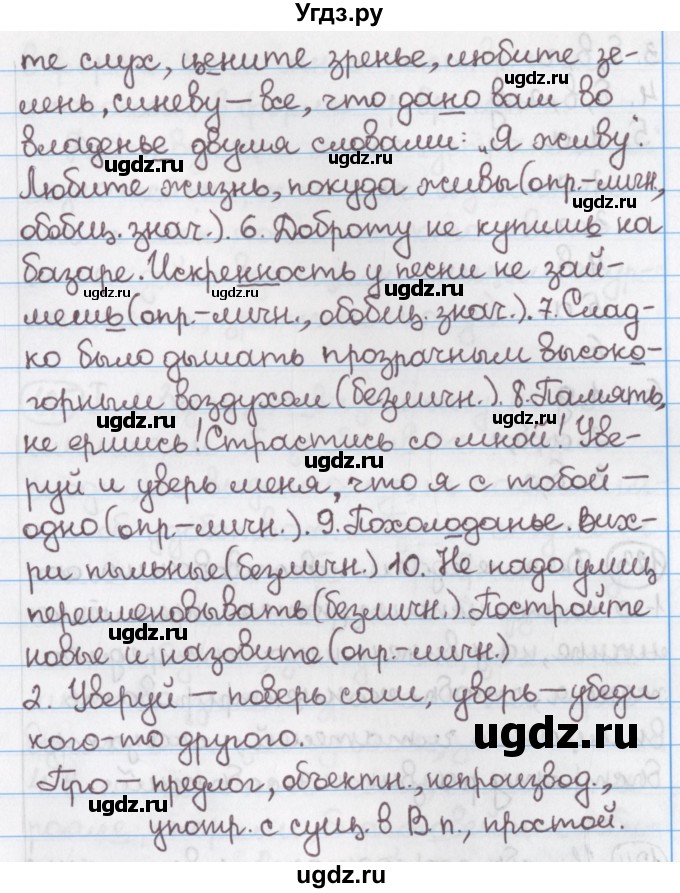 Угдз.ру
те слух, цените зренье, любите зе-
лень, синеву – все, что дано вам во
владенье двумя словами: „Я живу".
Любите жизнь, покуда живы (опр.-личн.,
обобщ. знач.). 6. Доброту не купишь на
базаре. Искренность у песни не зай-
мешь (опр.-личн., обобщ. знач.). 7. Слад-
ко было дышать прозрачным высоко-
горным воздухом (безличн.). 8. Память,
не ершись! Страстись со мной! Уве-
руй и уверь меня, что я с тобой –
одно (опр.-личн.). 9. Похолоданье. Вих-
ри пыльные (безличн.) 10. Не надо улиц
переименовывать (безличн.) Постройте
новые и назовите (опр.-личн.)
2. Уверуй – поверь сам, уверь – убеди
кого-то другого.
Про – предлог, объектн., непроизвод.,
употр. с сущ. в В.п., простой.
ugdz.ru